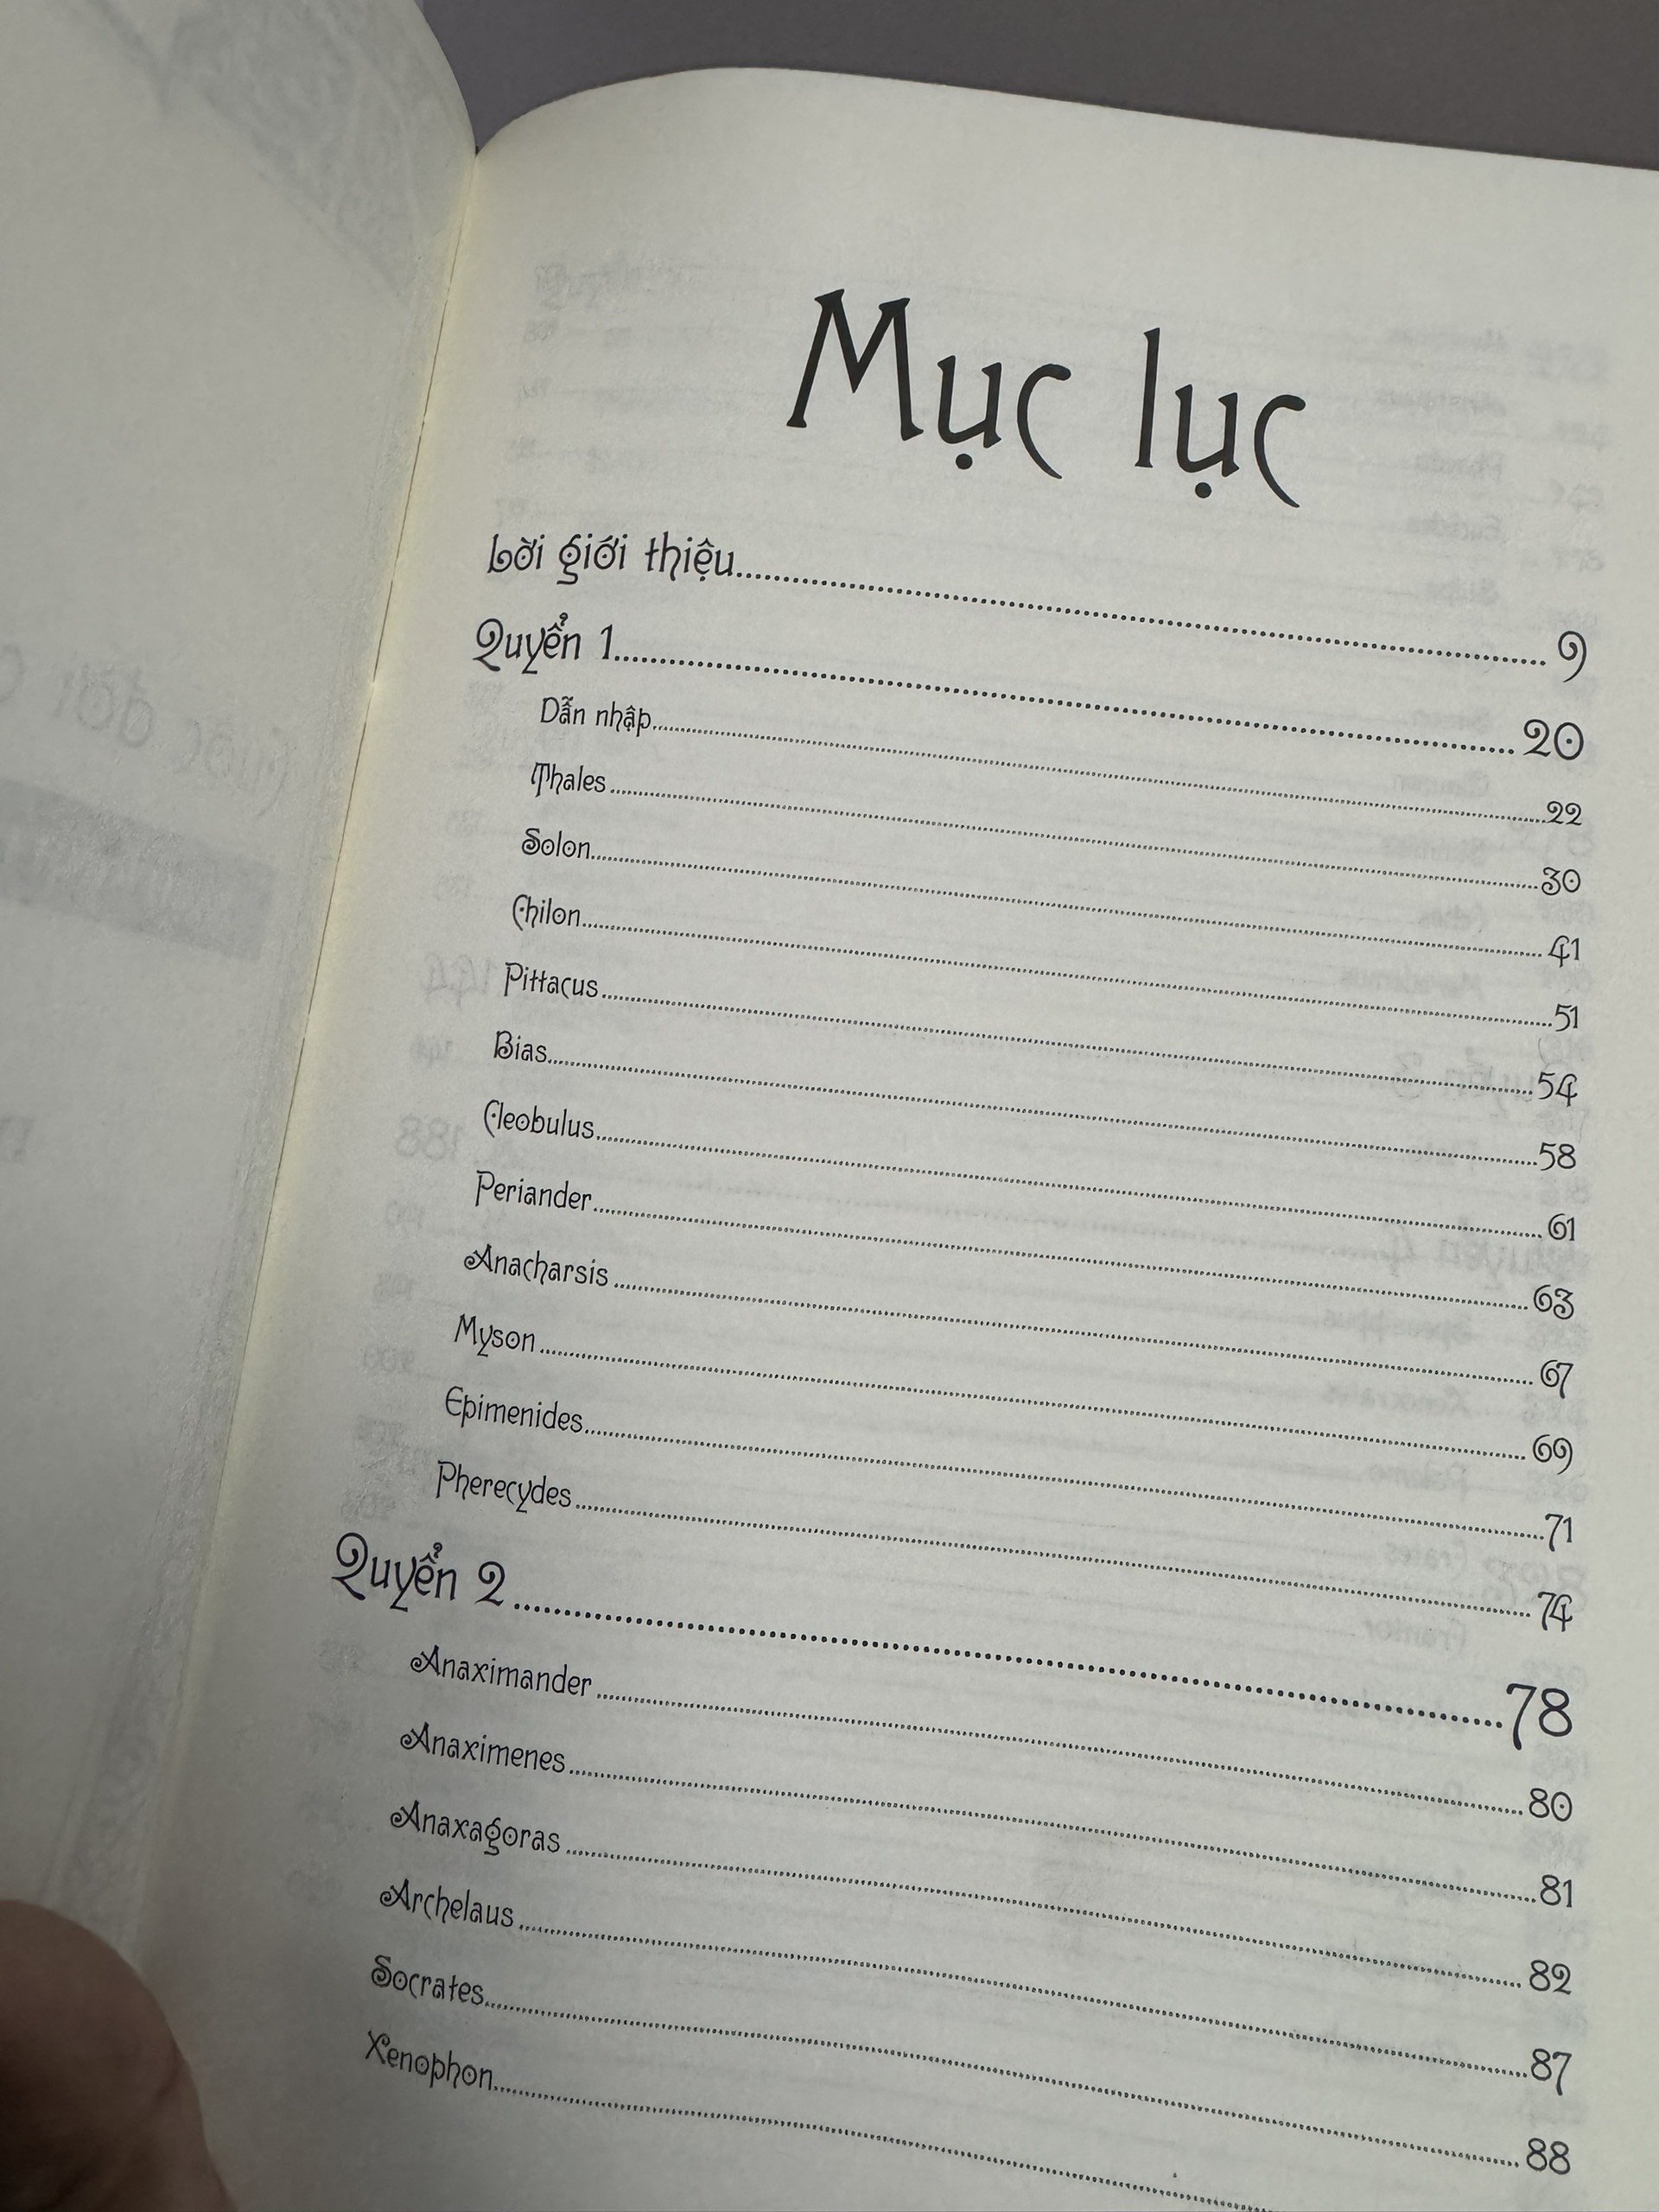 Mục lục
Lời giới thiệu........ 9
Quyển 1........ 20
Dẫn nhập........22
Thales........30
Solon........41
Chilon........51
Pittacus........54
Bias........58
Cleobulus........61
Periander........63
Anacharsis........67
Myson........69
Epimenides........71
Pherecydes........74
Quyển 2........78
Anaximander........80
Anaximenes........81
Anaxagoras........82
Archelaus........87
Socrates........88
Xenophon........